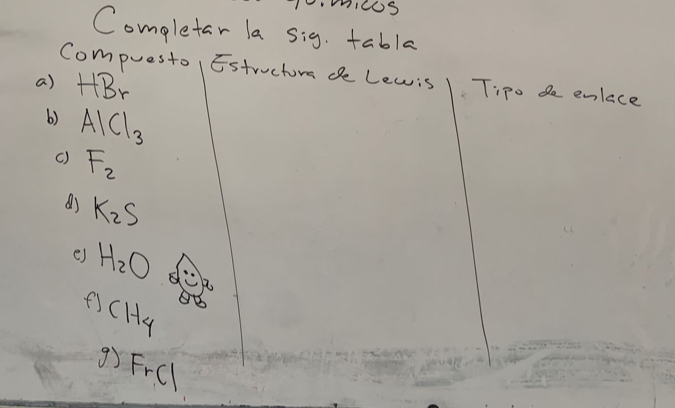 Completar la sig. tabla
Compuesto | Estructura de Lewis | Tipo de enlace
a) HBr
b) AlCl₃
c) F₂
d) K₂S
e) H₂O
f) CH₄
g) FrCl